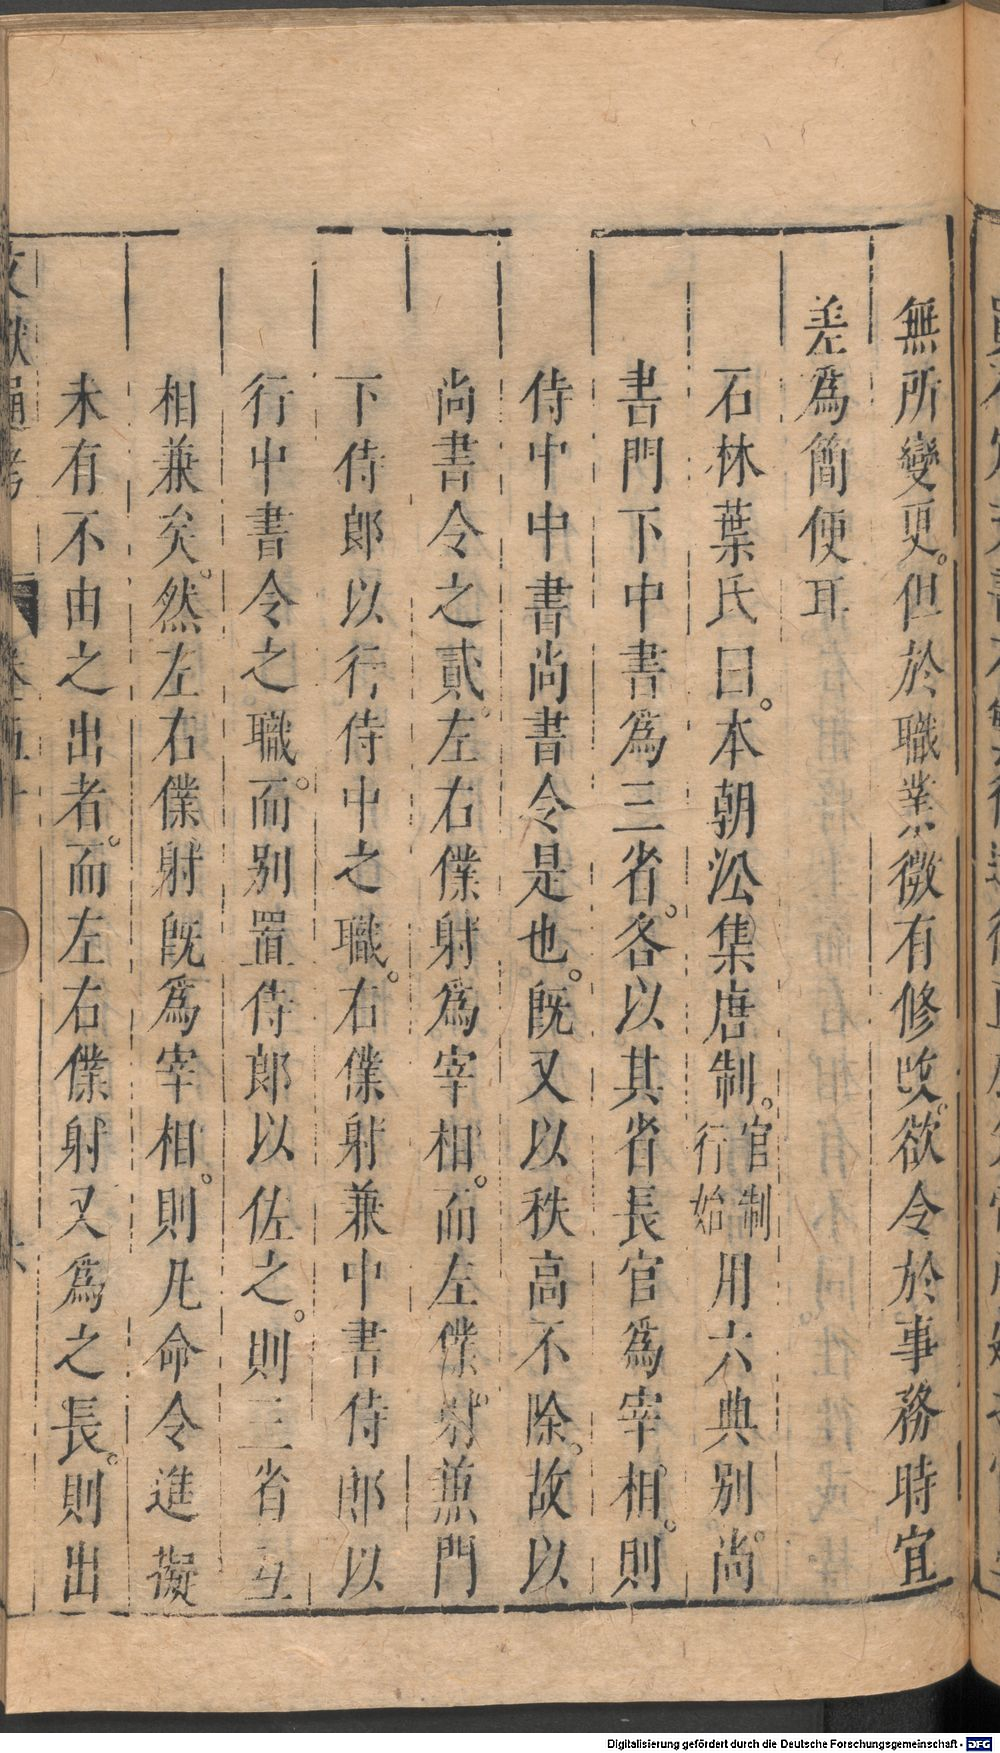 無所變更。但於職業微有修改。欲令於事務時宜
差爲簡便耳
石林葉氏曰。本朝㳂集唐制。官制行始用六典別尚
書門下中書爲三省。各以其省長官爲宰相。則
侍中中書尚書令是也。旣又以秩高不除。故以
尚書令之貳。左右僕射爲宰相。而左僕射兼門
下侍郎以行侍中之職。右僕射兼中書侍郎以
行中書令之職。而別置侍郎以佐之。則三省互
相兼矣。然左右僕射旣爲宰相。則凡命令進擬
未有不由之出者。而左右僕射又爲之長。則出
文獻通考
Digitalisierung gefördert durch die Deutsche Forschungsgemeinschaft - DFG